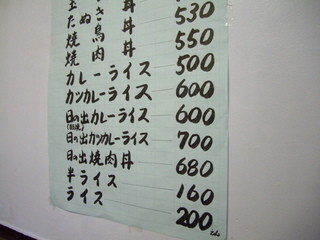 玉 丼
たぬき丼
焼鳥丼 530
焼肉丼 550
カレーライス 500
カツカレーライス 600
日の出カレーライス 600
日の出カツカレーライス 700
日の出焼肉丼 680
半ライス 160
ライス 200